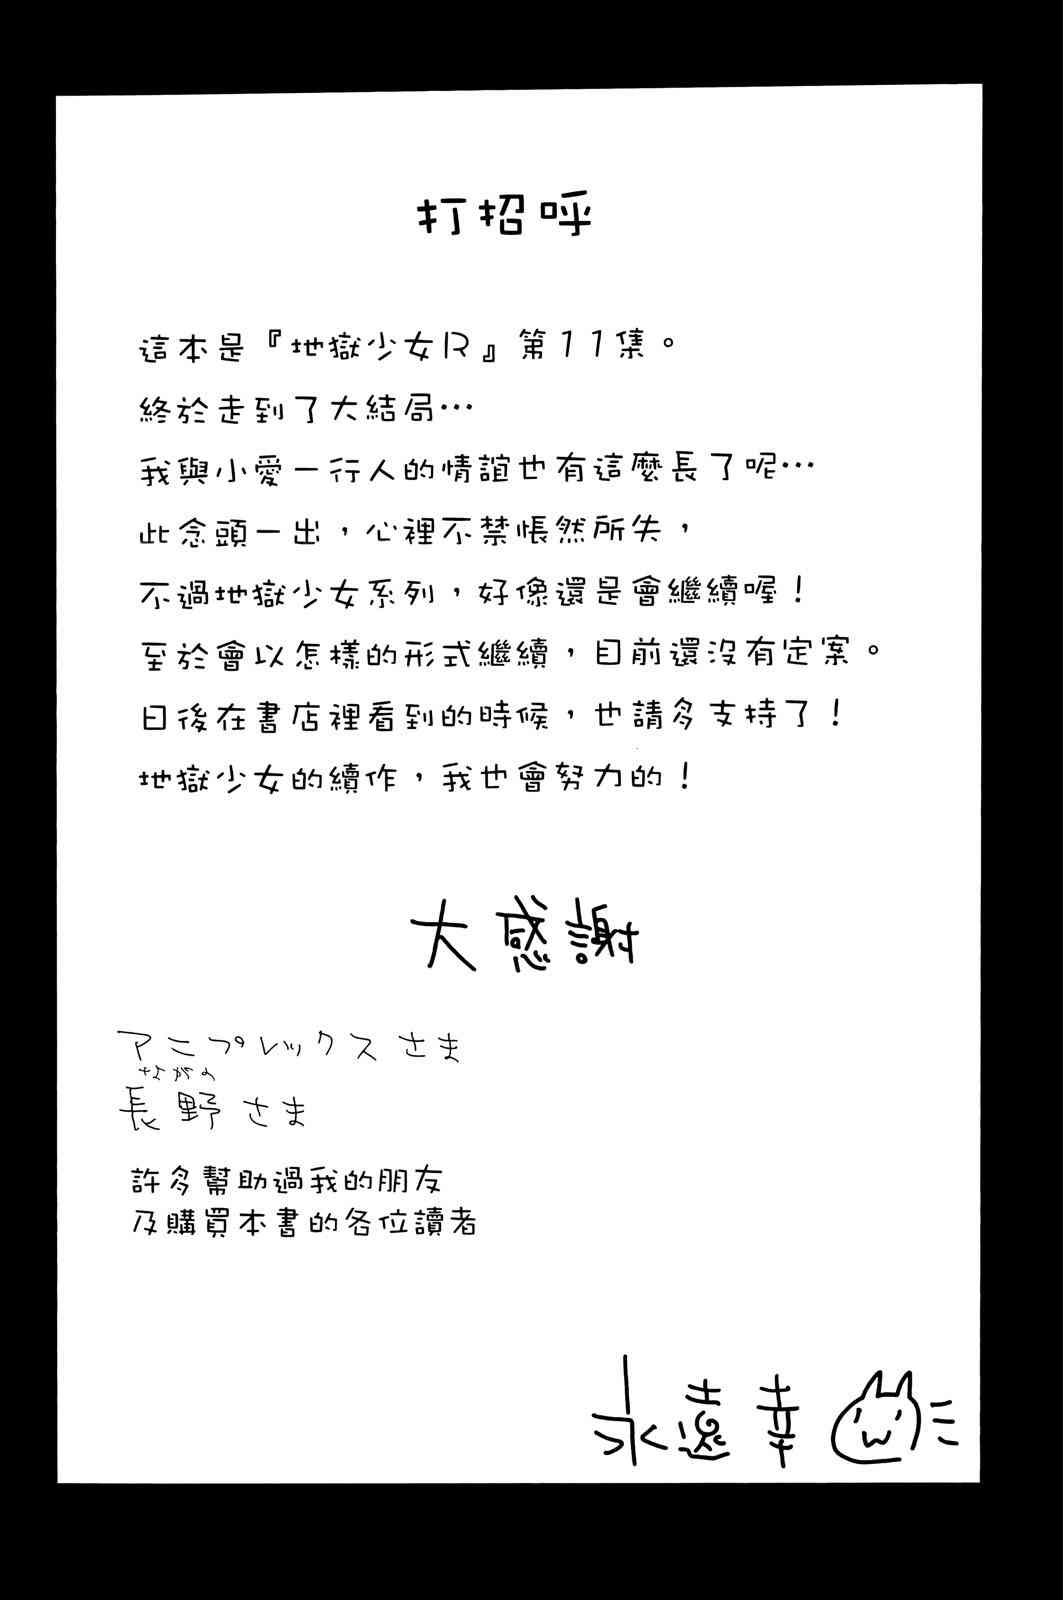 打招呼
這本是『地獄少女R』第11集。
終於走到了大結局…
我與小愛一行人的情誼也有這麼長了呢…
此念頭一出，心裡不禁悵然所失，
不過地獄少女系列，好像還是會繼續喔！
至於會以怎樣的形式繼續，目前還沒有定案。
日後在書店裡看到的時候，也請多支持了！
地獄少女的續作，我也會努力的！
大感謝
アニプレックスさま
ながの
長野さま
許多幫助過我的朋友
及購買本書的各位讀者
永遠幸